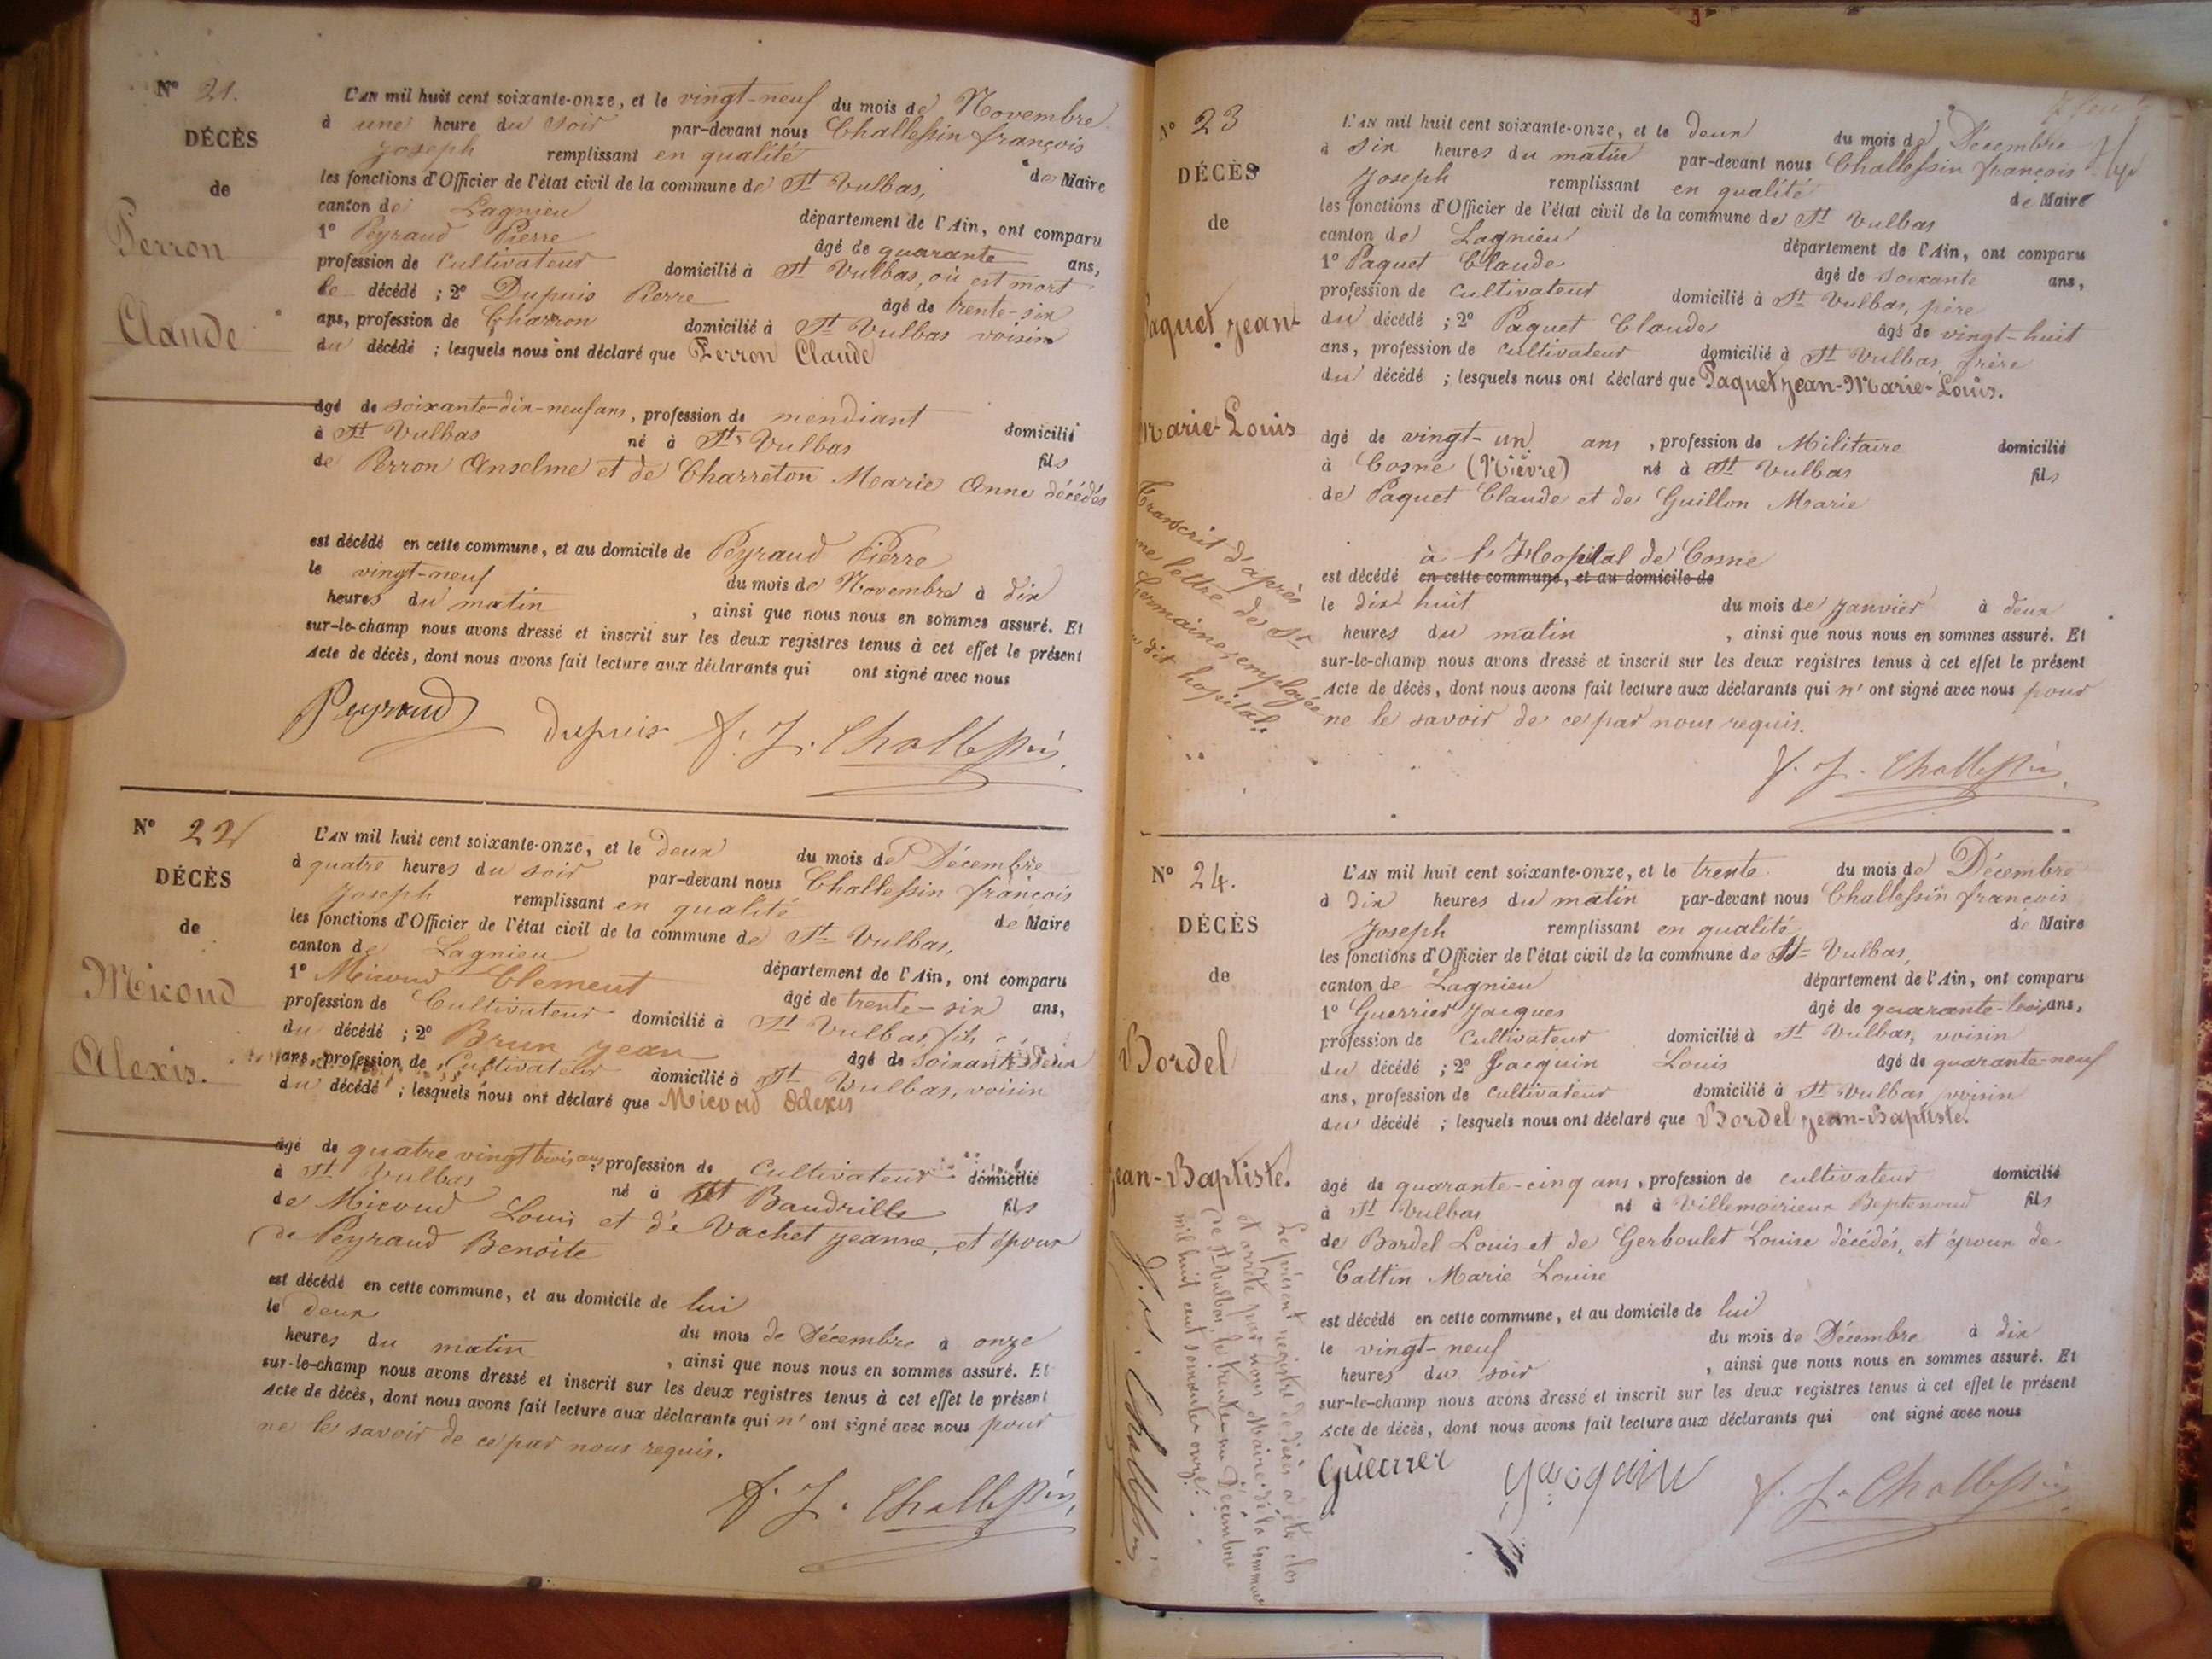 N° 21.
DÉCÈS
de
Perron
Claude
L'AN mil huit cent soixante-onze, et le vingt-neuf du mois de Novembre
à une heure du soir par-devant nous Challessin françois
Joseph remplissant en qualité de Maire
les fonctions d'Officier de l'état civil de la commune de St Vulbas,
canton de Lagnieu département de l'Ain, ont comparu
1° Peyraud Pierre âgé de quarante ans,
profession de Cultivateur domicilié à St Vulbas, où est mort
le décédé ; 2° Dupuis Pierre âgé de trente-six
ans, profession de Charron domicilié à St Vulbas voisin
du décédé ; lesquels nous ont déclaré que Perron Claude
âgé de soixante-dix-neuf ans, profession de mendiant domicilié
à St Vulbas né à St Vulbas fils
de Perron Anselme et de Charreton Marie Anne décédés
est décédé en cette commune, et au domicile de Peyraud Pierre
le vingt-neuf du mois de Novembre à dix
heures du matin , ainsi que nous nous en sommes assuré. Et
sur-le-champ nous avons dressé et inscrit sur les deux registres tenus à cet effet le présent
Acte de décès, dont nous avons fait lecture aux déclarants qui ont signé avec nous
Peyraud dupuis f. J. Challessin
N° 22
DÉCÈS
de
Micoud
Alexis.
L'AN mil huit cent soixante-onze, et le deux du mois de Décembre
à quatre heures du soir par-devant nous Challessin françois
Joseph remplissant en qualité de Maire
les fonctions d'Officier de l'état civil de la commune de St Vulbas,
canton de Lagnieu département de l'Ain, ont comparu
1° Micoud Clement âgé de trente-six ans,
profession de Cultivateur domicilié à St Vulbas, fils
du décédé ; 2° Brun Jean âgé de soixante deux
ans, profession de Cultivateur domicilié à St Vulbas, voisin
du décédé ; lesquels nous ont déclaré que Micoud Alexis
âgé de quatre vingt trois ans, profession de Cultivateur domicilié
à St Vulbas né à St Baudrille fils
de Micoud Louis et de Vachet Jeanne, et époux
de Peyraud Benoîte
est décédé en cette commune, et au domicile de lui
le deux du mois de Décembre à onze
heures du matin , ainsi que nous nous en sommes assuré. Et
sur-le-champ nous avons dressé et inscrit sur les deux registres tenus à cet effet le présent
Acte de décès, dont nous avons fait lecture aux déclarants qui n' ont signé avec nous pour
ne le savoir de ce par nous requis.
f. J. Challessin
N° 23
DÉCÈS
de
Paquet Jean-
Marie-Louis
Transcrit d'après
une lettre de Sr
Germaine, employée
au dit hopital.
L'AN mil huit cent soixante-onze, et le deux du mois de Décembre
à six heures du matin par-devant nous Challessin françois
Joseph remplissant en qualité de Maire
les fonctions d'Officier de l'état civil de la commune de St Vulbas
canton de Lagnieu département de l'Ain, ont comparu
1° Paquet Claude âgé de soixante ans,
profession de cultivateur domicilié à St Vulbas, père
du décédé ; 2° Paquet Claude âgé de vingt-huit
ans, profession de cultivateur domicilié à St Vulbas, frère
du décédé ; lesquels nous ont déclaré que Paquet Jean-Marie-Louis.
âgé de vingt-un ans , profession de Militaire domicilié
à Cosne (Nièvre) né à St Vulbas fils
de Paquet Claude et de Guillon Marie
à l'Hopital de Cosne
est décédé en cette commune, et au domicile de
le dix huit du mois de Janvier à deux
heures du matin , ainsi que nous nous en sommes assuré. Et
sur-le-champ nous avons dressé et inscrit sur les deux registres tenus à cet effet le présent
Acte de décès, dont nous avons fait lecture aux déclarants qui n' ont signé avec nous pour
ne le savoir de ce par nous requis.
f. J. Challessin
N° 24.
DÉCÈS
de
Bordel
Jean-Baptiste.
Le présent registre de décès a été clos
et arrêté par nous Maire de la commune
de St Vulbas, le trente un Décembre
mil huit cent soixante onze.
f. J. Challessin
L'AN mil huit cent soixante-onze, et le trente du mois de Décembre
à dix heures du matin par-devant nous Challessin françois
Joseph remplissant en qualité de Maire
les fonctions d'Officier de l'état civil de la commune de St Vulbas,
canton de Lagnieu département de l'Ain, ont comparu
1° Guerrier Jacques âgé de quarante-trois ans,
profession de cultivateur domicilié à St Vulbas, voisin
du décédé ; 2° Jacquin Louis âgé de quarante-neuf
ans, profession de cultivateur domicilié à St Vulbas, voisin
du décédé ; lesquels nous ont déclaré que Bordel Jean-Baptiste.
âgé de quarante-cinq ans, profession de cultivateur domicilié
à St Vulbas né à Villemoirieux Beptenoud fils
de Bordel Louis et de Gerboulet Louise décédés, et époux de
Cattin Marie Louise
est décédé en cette commune, et au domicile de lui
le vingt-neuf du mois de Décembre à dix
heures du soir , ainsi que nous nous en sommes assuré. Et
sur-le-champ nous avons dressé et inscrit sur les deux registres tenus à cet effet le présent
Acte de décès, dont nous avons fait lecture aux déclarants qui ont signé avec nous
Guerrier Jacquin f. J. Challessin